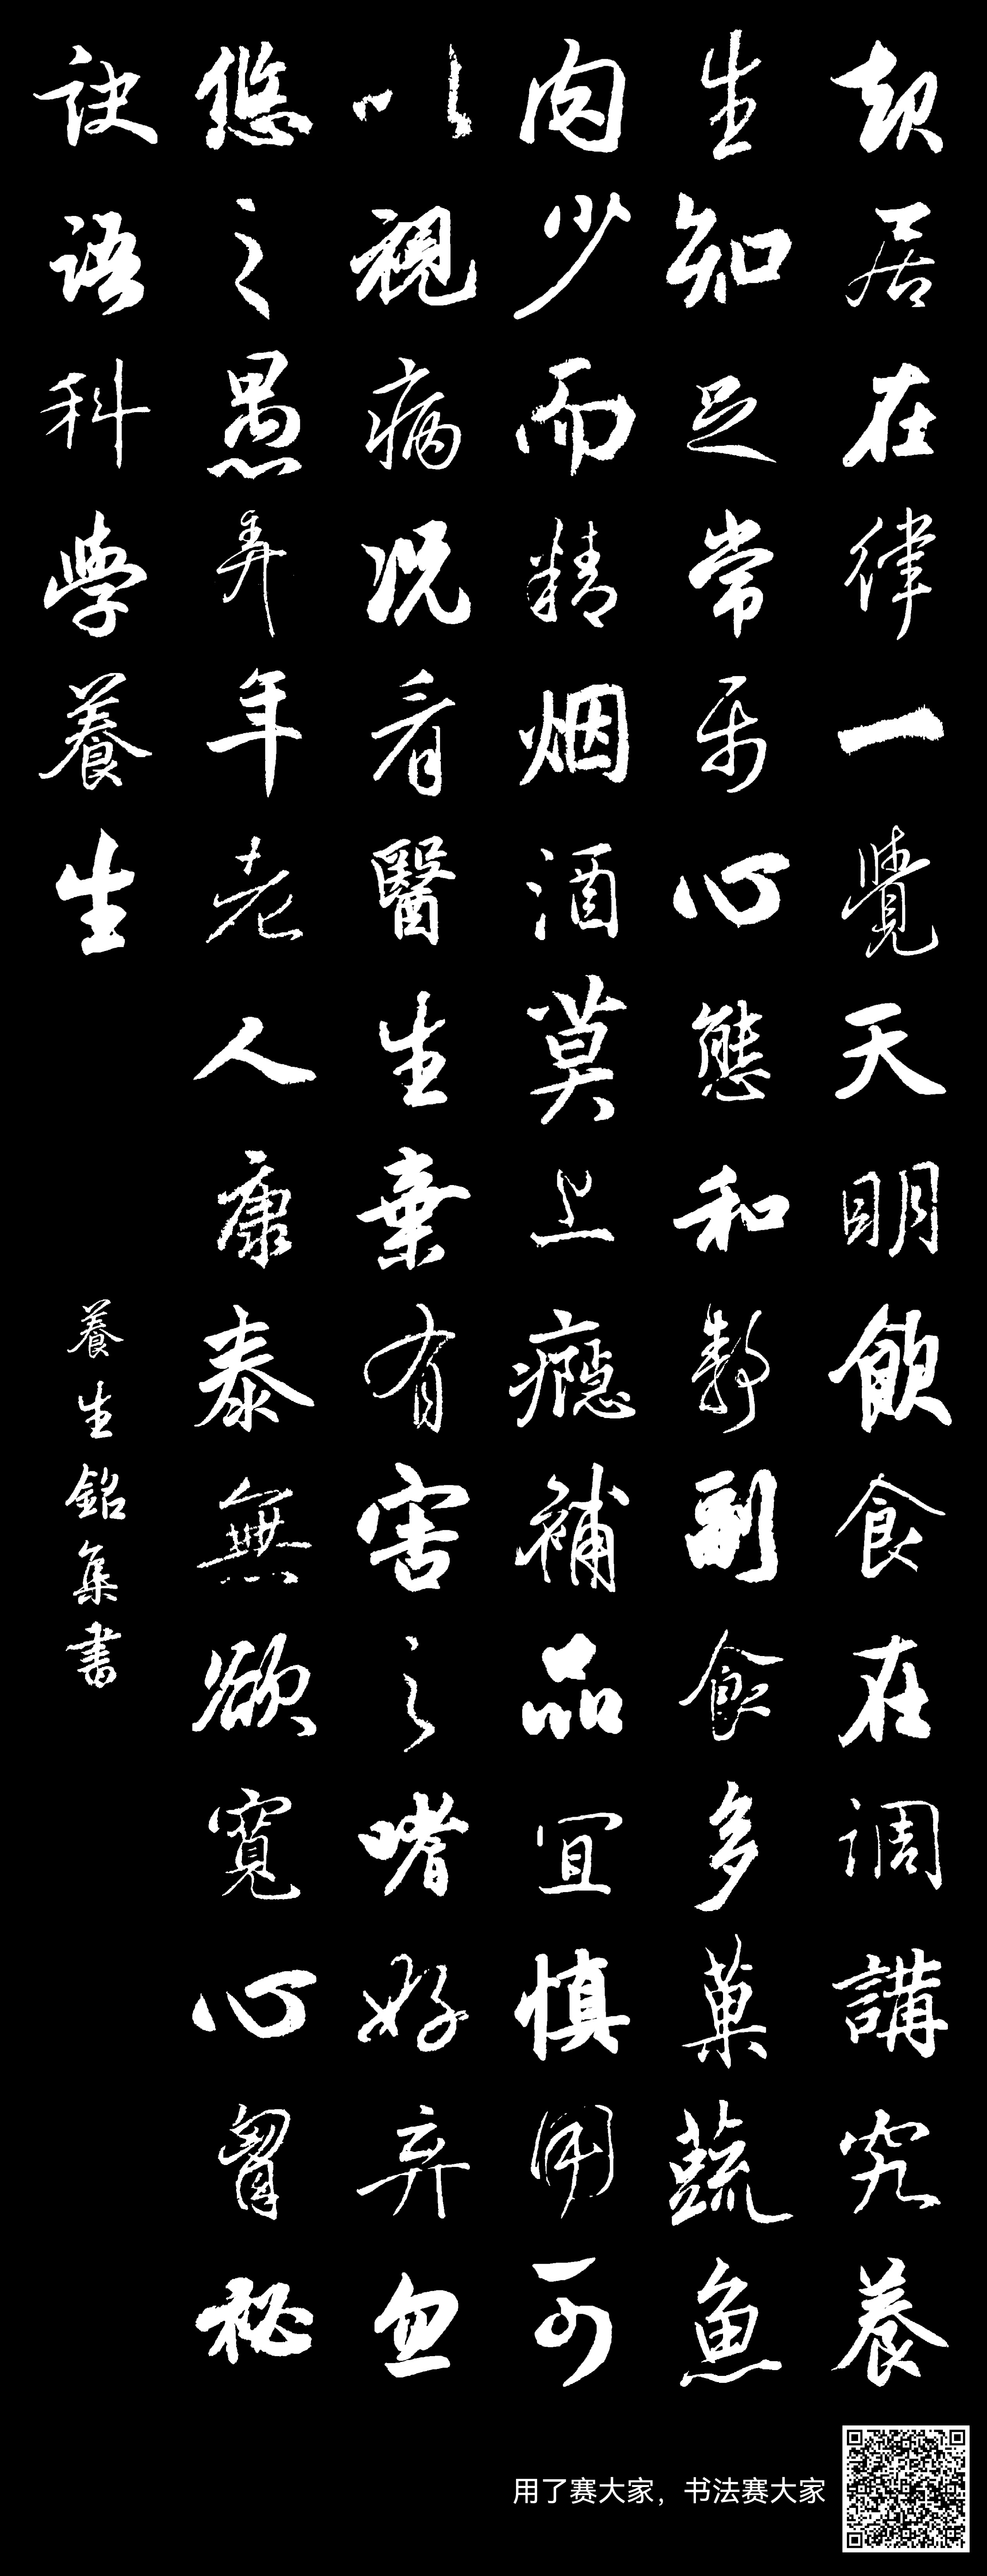 起居在律一覺天明飲食在调講究養
生知足常乐心態和静副食多菓蔬魚
肉少而精烟酒莫上瘾補品宜慎用可
以視病况看醫生棄有害之嗜好弃忽
悠之愚弄年老人康泰無欲寬心胷秘
訣語科學養生
養生銘集書
用了赛大家，书法赛大家